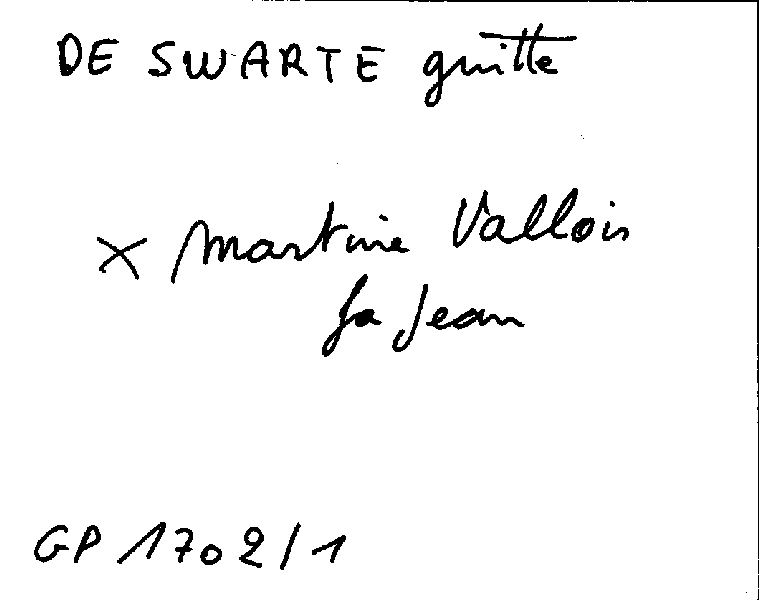 DE SWARTE guitte
× Martine Vallois
fa Jean
GP 1702/1